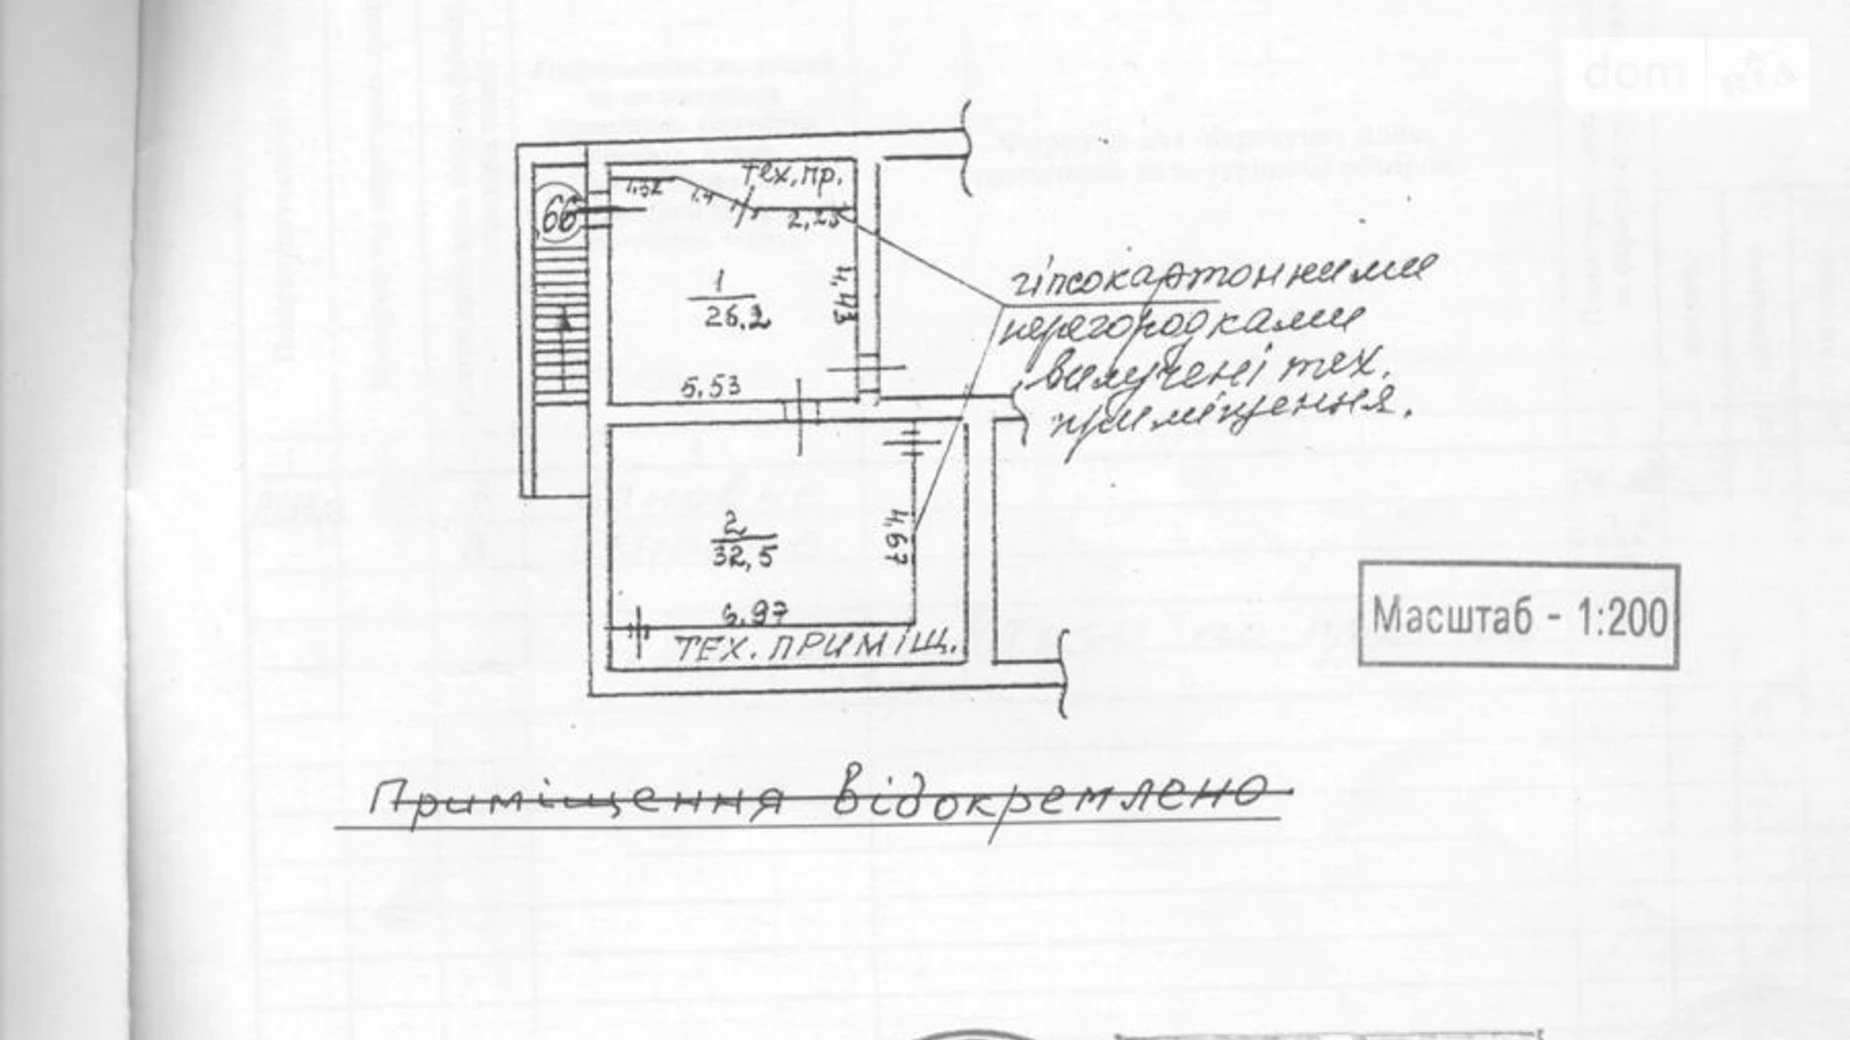 dom РІА
тех.пр.
1.32
1.4
2,25
66
1
26.2
4,43
5,53
гіпсокартонними
перегородками
вилучені тех.
приміщення.
2
32,5
4,67
6.97
ТЕХ. ПРИМІЩ.
Масштаб - 1:200
Приміщення відокремлено